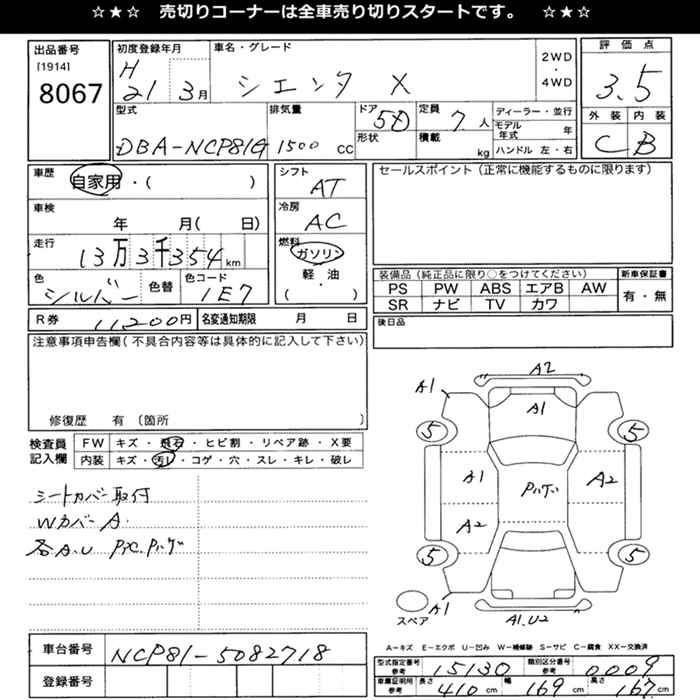 ☆★☆ 売切りコーナーは全車売り切りスタートです。 ☆★☆
出品番号
[1914]
8067
初度登録年月
H
21 3月
車名・グレード
シエンタ X
2WD
・
4WD
評価点
3.5
外装 内装
C B
型式
DBA-NCP81G
排気量
1500 CC
ドア
5D
形状
定員
7人
積載
kg
ディーラー・並行
モデル年式 年
ハンドル 左・右
車歴
自家用・( )
車検
年 月( 日)
走行
13万3千354km
色
シルバー
色替
色コード
1E7
シフト
AT
冷房
AC
燃料
ガソリン
軽・油
( )
セールスポイント(正常に機能するものに限ります)
装備品(純正品に限り○をつけてください)
PS PW ABS エアB AW
SR ナビ TV カワ
新車保証書
有・無
R券 11200円
名変通知期限 月 日
後日品
注意事項申告欄(不具合内容等は具体的に記入して下さい)
修復歴 有 〔箇所 〕
検査員記入欄
FW キズ・飛石・ヒビ割・リペア跡・X要
内装 キズ・汚レ・コゲ・穴・スレ・キレ・破レ
シートカバー取付
Wカバー A.
各A.U
A2
A1
A1
5
5
A1
A2
A2
5
5
A1
A1.U2
スペア
A-キズ E-エクボ U-凹み W-補修跡 S-サビ C-腐食 XX-交換済
車台番号
NCP81-5082718
登録番号
型式指定番号
参考
15130
類別区分番号
参考
0009
車庫証明用
参考
長さ
410cm
幅
169cm
高さ
167cm